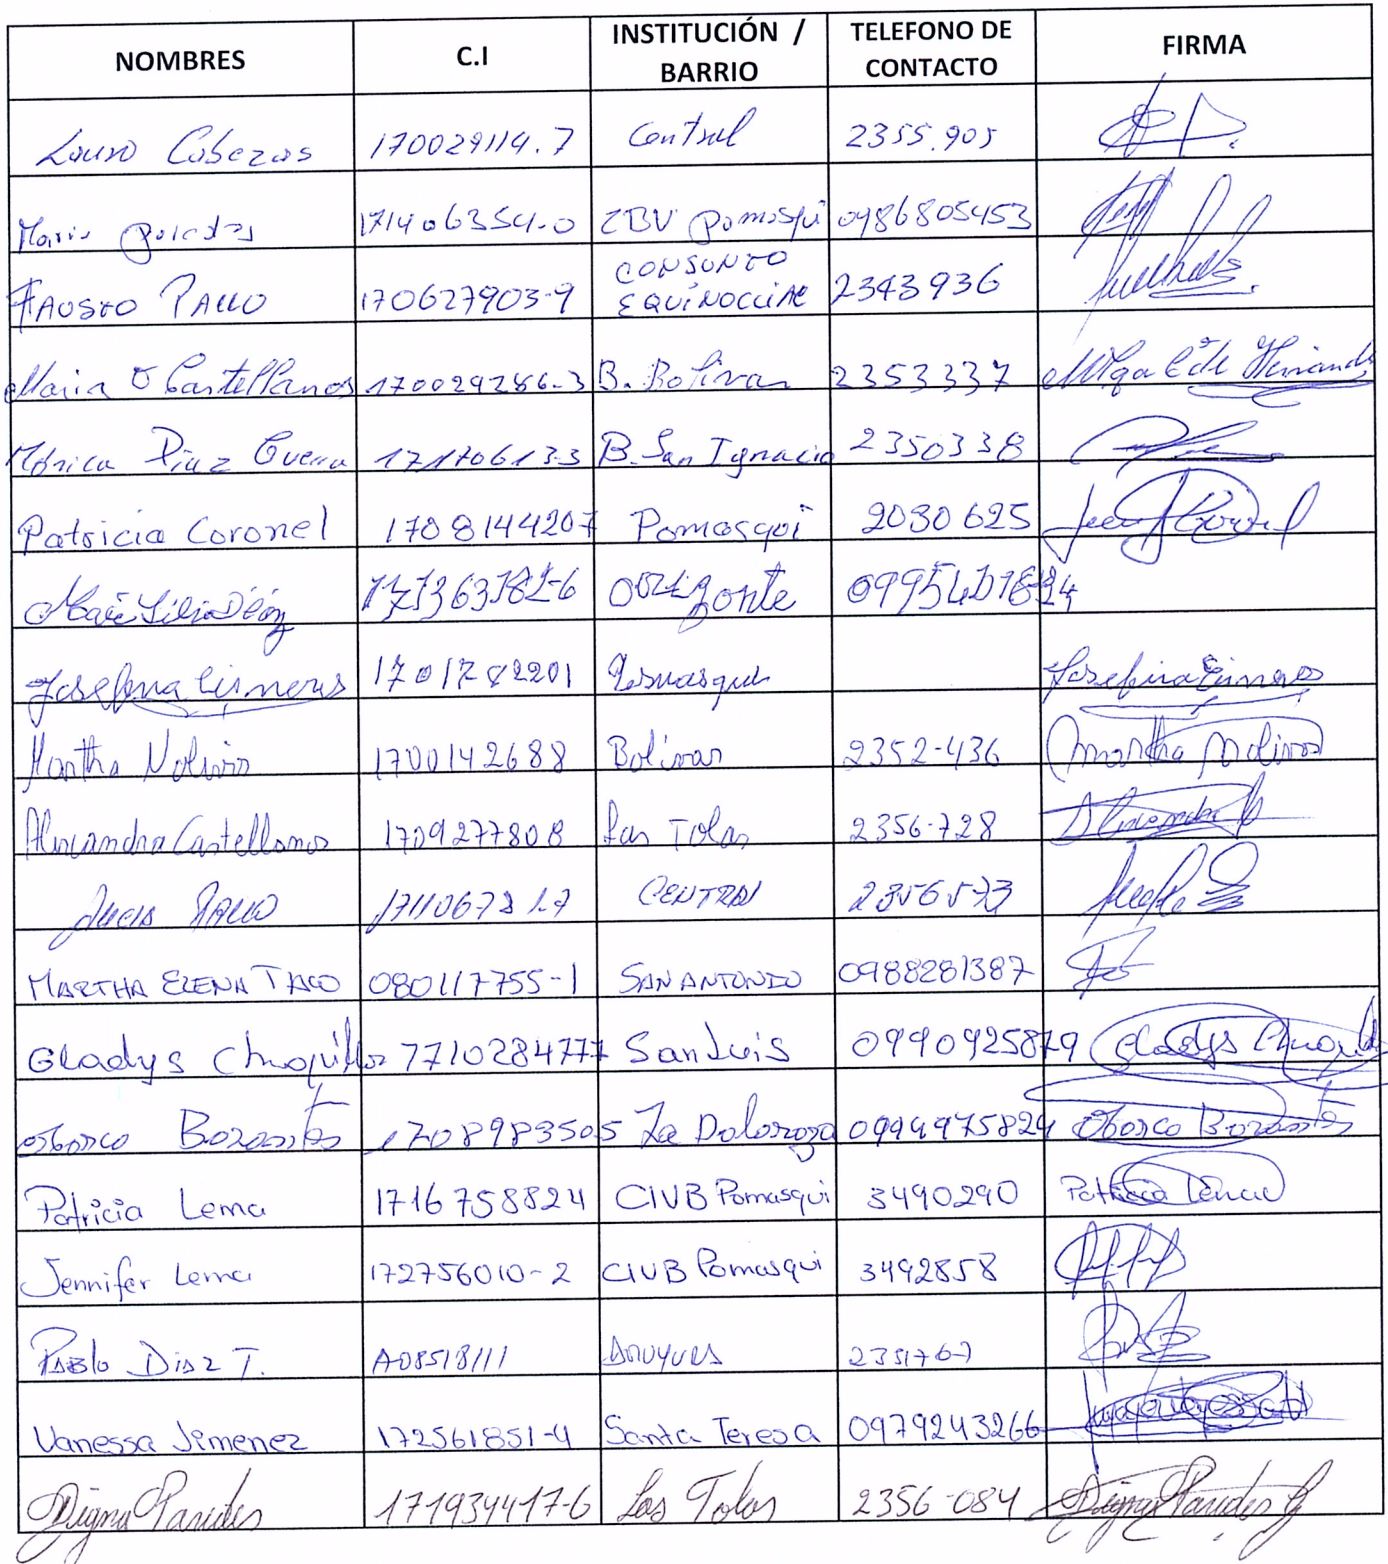 NOMBRES C.I INSTITUCIÓN / BARRIO TELEFONO DE CONTACTO FIRMA
Lauro Cabezas 170029114.7 Central 2355.905
Mario Paredes 171406354-0 CBV Pomasqui 0986805453
FAUSTO PALLO 170627903-9 CONJUNTO EQUINOCCIAL 2343936
Maria O Castellanos 170029286-3 B. Bolivar 2353337
Mónica Diaz Guerra 171170613-3 B. San Ignacio 2350338
Patricia Coronel 1708144207 Pomasqui 2030625
Díaz
Josefina Cisneros Pomasqui Josefina Cisneros
Martha Nolivos 1700142688 Bolívar 2352-436 Martha Nolivos
Alexandra Castellanos 1709277808 Las Tolas 2356-728
PALLO CENTRAL 2356573
MARTHA ELENA TACO 080117755-1 SAN ANTONIO 0988281387
Gladys 7710284777 San Luis 0990925879 Gladys
1708983505 La Doloroza 0999975824
Patricia Lema 1716758824 CIVB Pomasqui 3490290 Patricia Lema
Jennifer Lema 172756010-2 CIVB Pomasqui 3492858
PABLO DIAZ T. A08518111
Vanessa Jimenez 172561851-4 Santa Teresa 0979243266
Digna Paredes 171934417-6 Las Tolas 2356-084 Digna Paredes